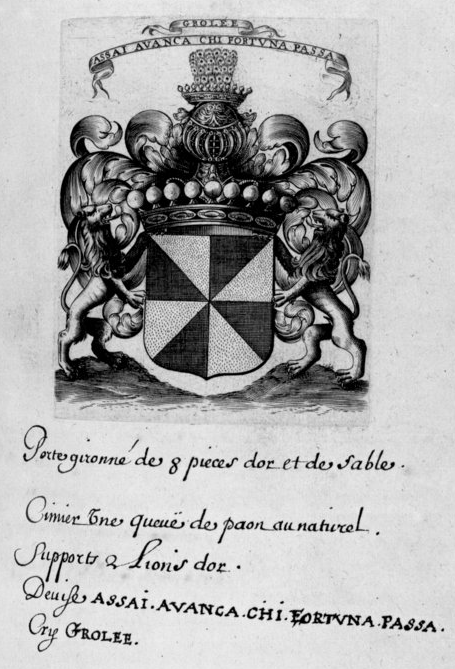 GROLEE
ASSAI AVANCA CHI FORTVNA PASSA
Porte gironné de 8 pieces dor et de sable.
Cimier Vne queuë de paon au naturel.
Supports 2 Lions dor.
Deuise ASSAI. AVANCA. CHI. FORTVNA. PASSA.
Cry GROLEE.